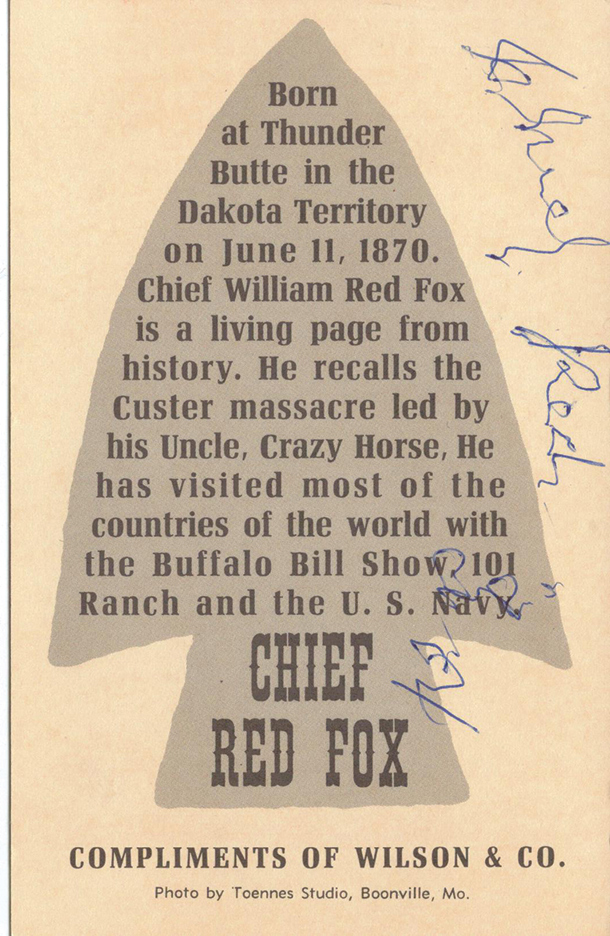 Born
at Thunder
Butte in the
Dakota Territory
on June 11, 1870.
Chief William Red Fox
is a living page from
history. He recalls the
Custer massacre led by
his Uncle, Crazy Horse, He
has visited most of the
countries of the world with
the Buffalo Bill Show, 101
Ranch and the U. S. Navy.
CHIEF
RED FOX
COMPLIMENTS OF WILSON & CO.
Photo by Toennes Studio, Boonville, Mo.